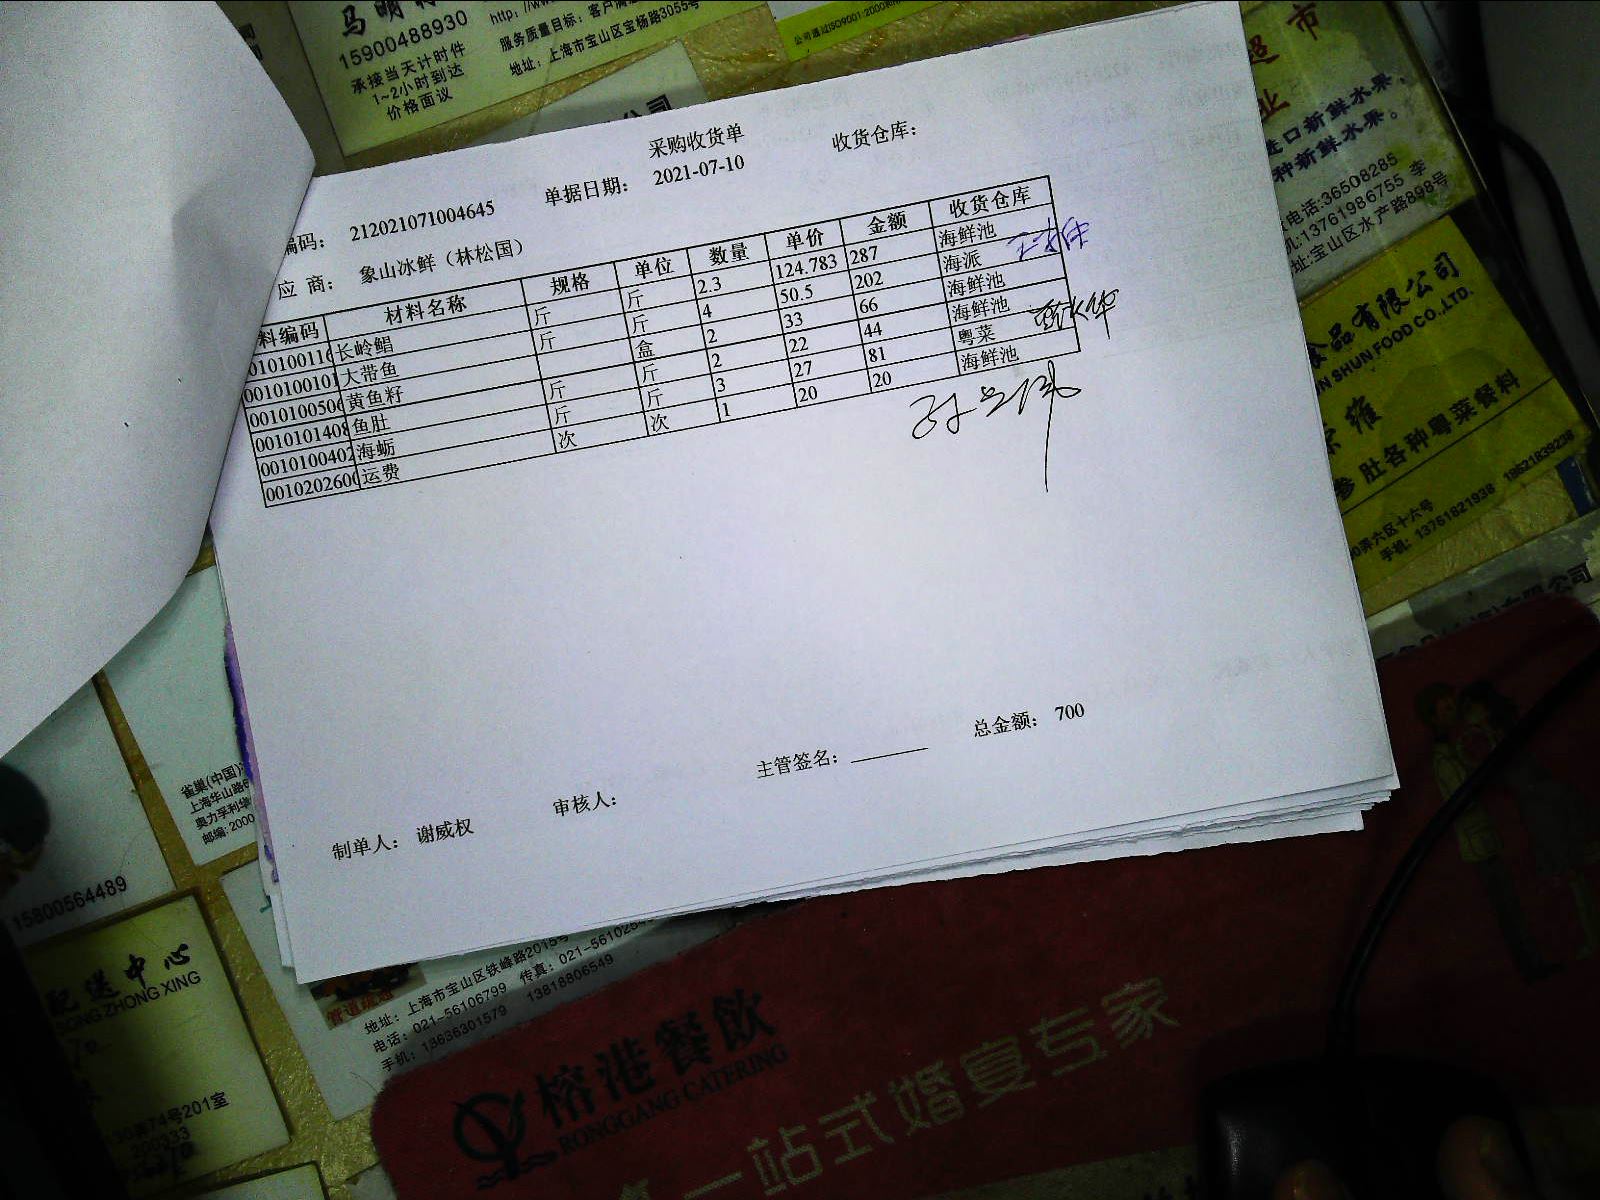 15900488930
承接当天计时件
1~2小时到达
价格面议
服务质量目标：客户满
地址：上海市宝山区宝杨路3055号
公司
采购收货单
编码： 212021071004645 单据日期： 2021-07-10 收货仓库：
应 商： 象山冰鲜（林松国）
料编码 材料名称 规格 单位 数量 单价 金额 收货仓库
010100116 长岭鲳 斤 斤 2.3 124.783 287 海鲜池
0010100101 大带鱼 斤 斤 4 50.5 202 海派
0010100506 黄鱼籽 盒 2 33 66 海鲜池
0010101408 鱼肚 斤 斤 2 22 44 海鲜池
0010100402 海蛎 斤 斤 3 27 81 粤菜
0010202600 运费 次 次 1 20 20 海鲜池
总金额： 700
主管签名：
审核人：
制单人： 谢威权
超市
业
进口新鲜水果，
种新鲜水果。
电话:36508285
机:13761986755 李
址:宝山区水产路898号
食品有限公司
N SHUN FOOD CO.,LTD.
参肚各种粤菜餐料
弄六区十六号
手机: 13761821938 18621839238
雀巢(中国)
上海华山路
奥力孚利华
邮编: 2000
15800564489
配送中心
RONG ZHONG XING
130弄74号201室
200333
管道疏通
地址: 上海市宝山区铁峰路2015号
电话: 021-56106799 传真: 021-5610
手机: 13636301579 13818806549
榕港餐飲
RONGGANG CATERING
一站式婚宴专家